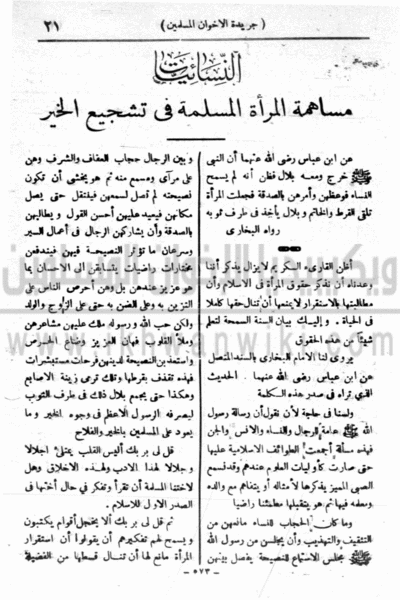 ( جريدة الاخوان المسلمين )
٢١
النسائيات
مساهمة المرأة المسلمة فى تشجيع الخير
عن ابن عباس رضى الله عنهما أن النبى
ﷺ خرج ومعه بلال فظن أنه لم يسمع
النساء فوعظهن وأمرهن بالصدقة فجعلت المرأة
تلقى القرط والخاتم وبلال يأخذ فى طرف ثوبه
رواه البخارى
أظن القارىء الكريم لا يزال يذكر أننا
وعدناه أن نذكر حقوق المرأة فى الاسلام وأن
مطالبتها بالاستقرار لا يمنعها أن تنال حقها كاملا
فى الحياة . وإليك بيان السنة السمحة لتعلم
شيئا من هذه الحقوق
يروى لنا الامام البخارى بالسند المتصل
عن ابن عباس رضى الله عنهما . الحديث
الذى تراه فى صدر هذه الكلمة
ولسنا فى حاجة لأن نقول أن رسالة رسول
الله ﷺ عامة للرجال والنساء والانس والجن
فهذه مسألة أجمعت الطوائف الاسلامية عليها
حتى صارت كأوليات العلوم عندهم وقد نسمع
الصبى المميز يذكرها لأمثاله أو يتفاهم مع والده
ومعلمه فيها ثم هو يتقبلها مطمئنا راضيا
وما كان الحجاب للنساء مانعهن من
التثقيف والتهذيب وأن يجلسن من رسول الله
ﷺ مجلس الاستماع للنصيحة يفصل بينهن
وبين الرجال حجاب العفاف والشرف وهن
على مرآى ومسمع منه ثم هو يخشى أن تكون
نصيحته لم تصل لسمعهن فيتنقل حتى يصل
مكانهن فيعيد عليهن أحسن القول ويطالبهن
بالصدقة وأن يشاركهن الرجال فى أعمال البر
وسرعان ما تؤثر النصيحة فيهن فيندفعن
مختارات راضيات يتسابقن الى الاحسان بما
هو عزيز عندهن بل وهن أحرص الناس على
التزين به وعلى الضن به حتى على الزوج والولد
ولكن حب الله ورسوله ملك عليهن مشاعرهن
وملأ القلوب فهان العزيز وضاع الحرص
واستعذبن النصيحة لدينهن فرحات مستبشرات
فهذه تقذف بقرطها وتلك ترمى زينة الاصابع
وهكذا حتى يجمع بلال ذلك فى طرف الثوب
ليصرفه الرسول الاعظم فى وجوه الخير وما
يعود على المسلمين بالخير والفلاح
قل لى بربك أليس القلب يمتلئ اجلالا
وجلالا لهذا الادب ولهذه الاخلاق وهل
لاختنا المسلمة أن تقرأ وتفكر فى حال أختها فى
الصدر الاول للاسلام .
ثم قل لى بربك ألا يخجل أقوام يكتبون
ويسمح لهم تفكيرهم أن يقولوا أن استقرار
المرأة مانع لها أن تنال قسطها من الفضيلة
— ٥٧٣ —